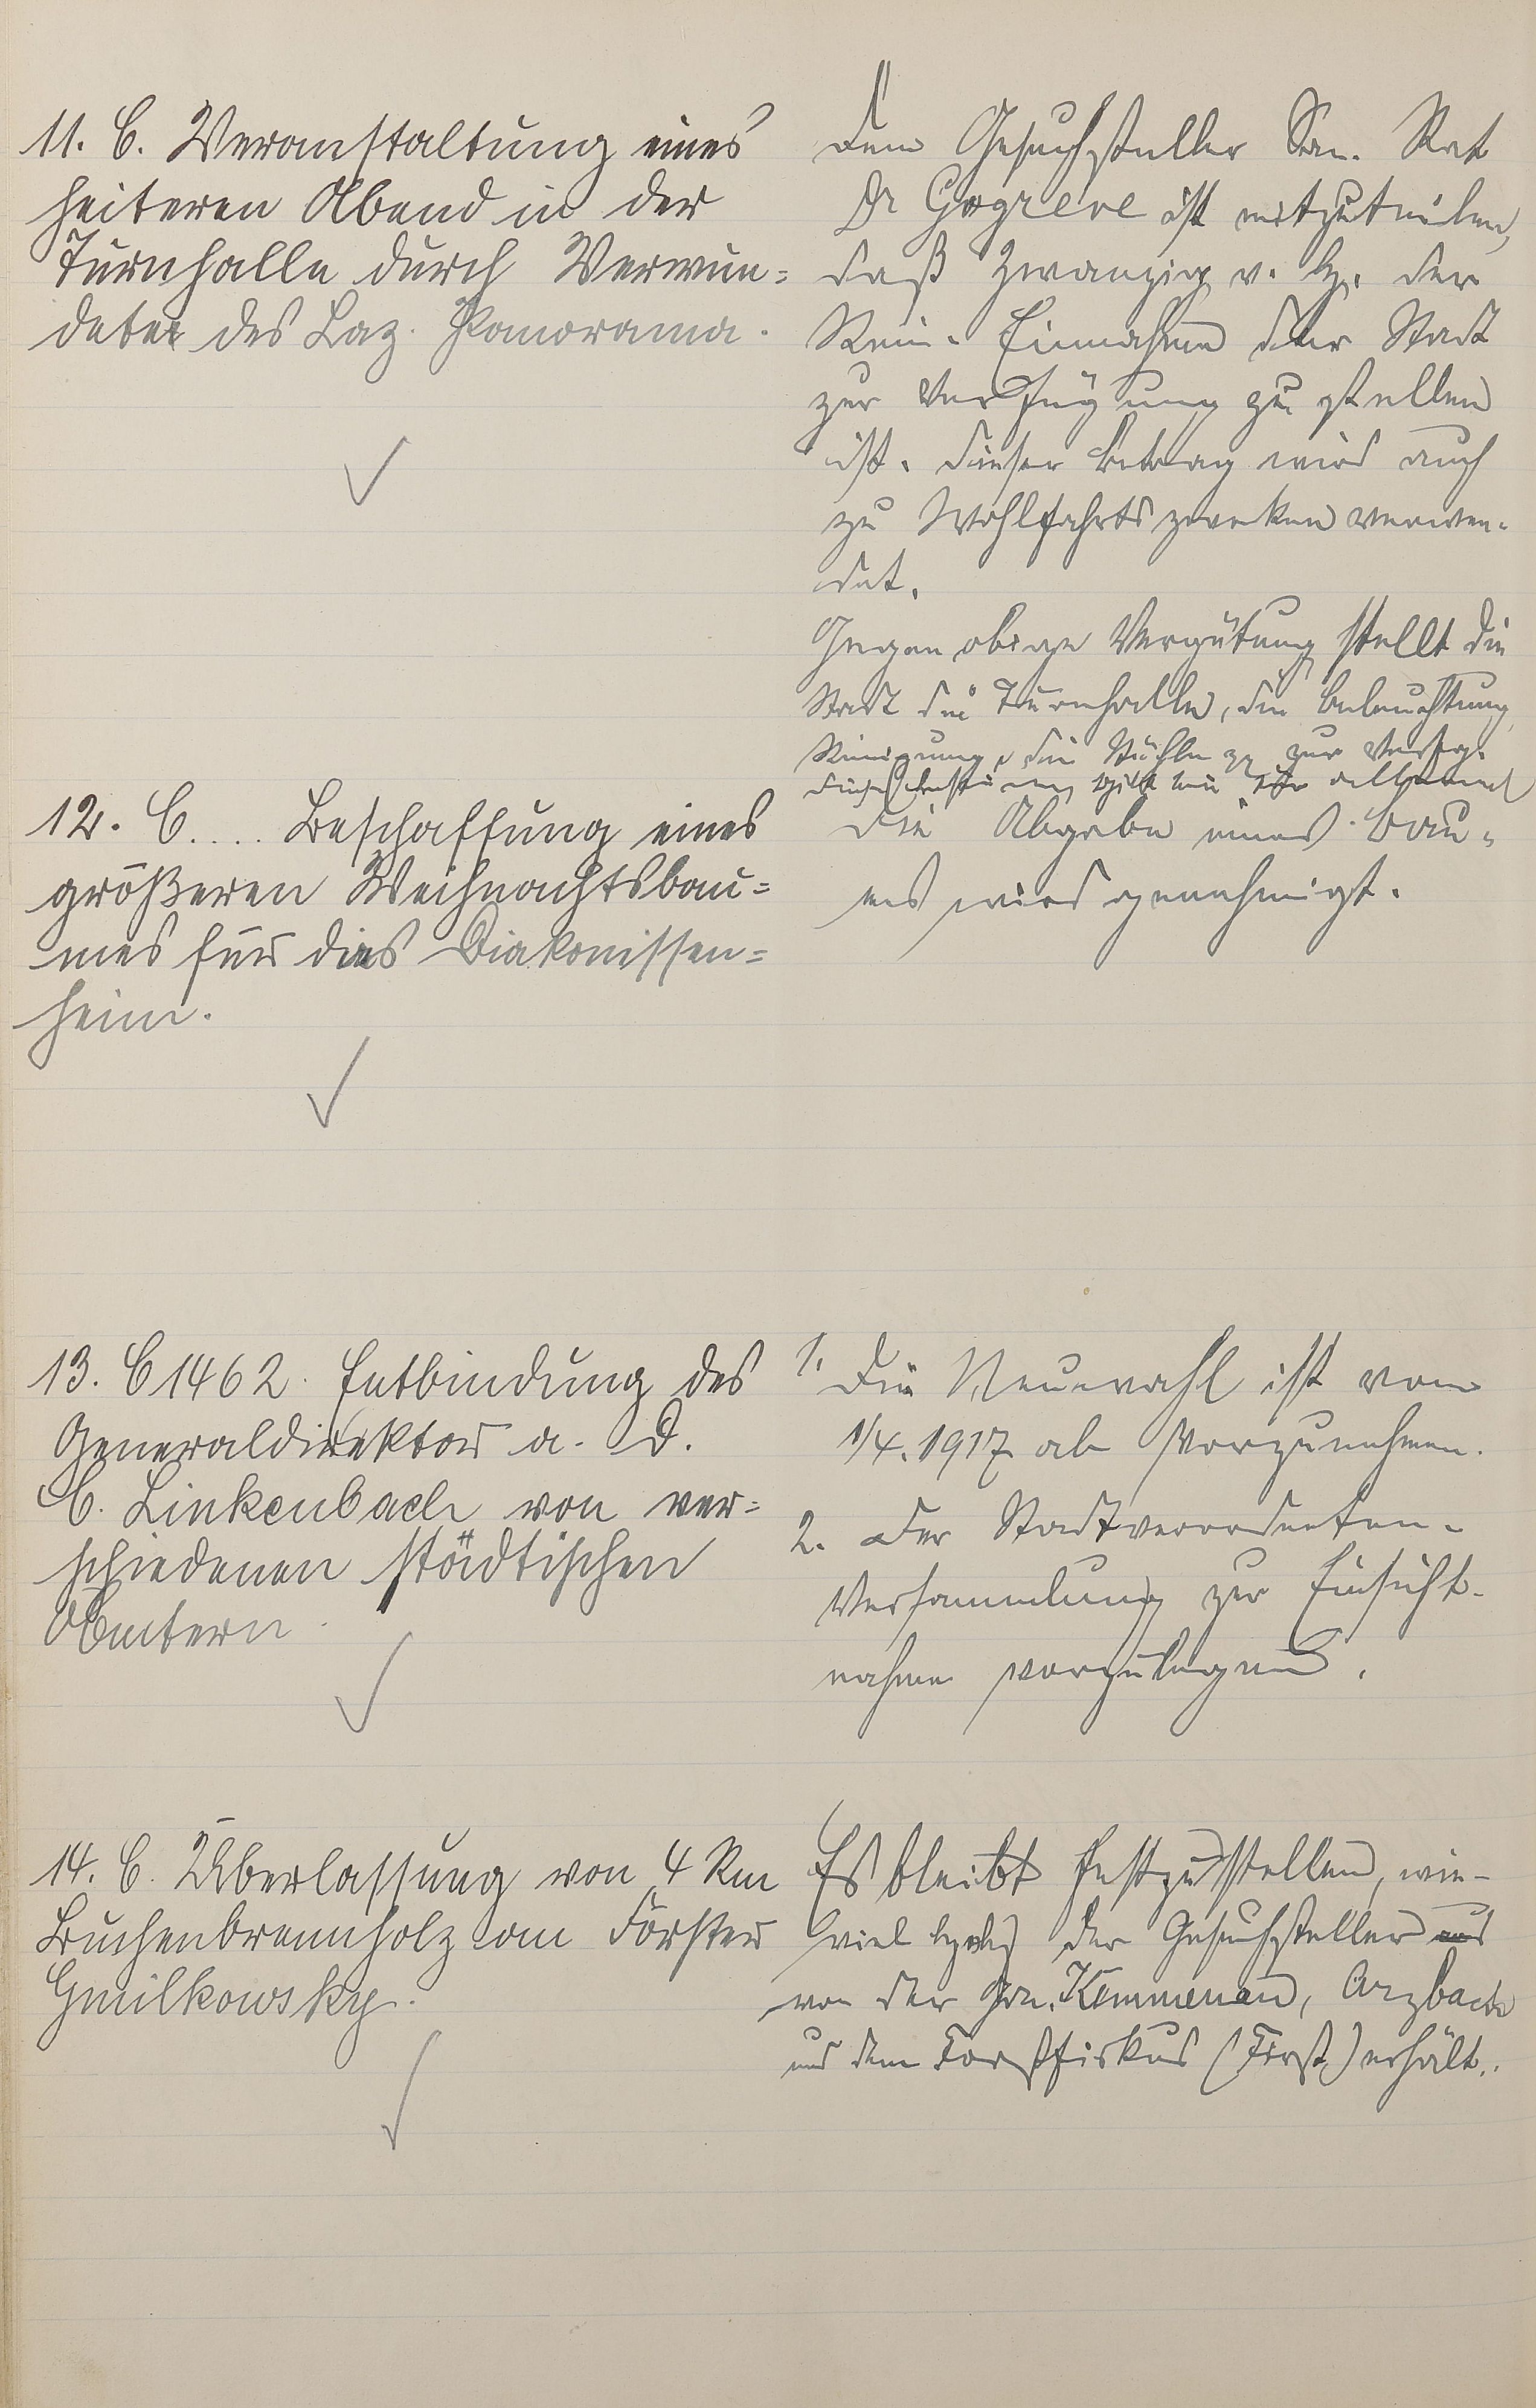 11. C. Veranstaltung eines
heiteren Abend in der
Turnhalle durch Verwun=
deter des Laz. Panorama.
Dem Gesuchsteller San. Rat
Dr Gogreve ist mitzuteilen,
daß zwanzig v. H. der
Rein-Einnahme der Stadt
zur Verfügung zu stellen
ist. Dieser Betrag wird auch
zu Wohlfahrtszwecken verwen-
det.
Gegen obige Vergütung stellt die
Stadt die Turnhalle, die Beleuchtung,
Reinigung, die Stühle zur Verfüg.
12. C.... Beschaffung eines
größeren Weihnachtsbau=
mes für das Diakonissen=
heim.
Die Abgabe eines Bau-
mes wird genehmigt.
13. C 1462. Entbindung des
Generaldirektors a. D.
C. Linkenbach von ver=
schiedenen städtischen
Ämtern.
1. Die Neuwahl ist vom
1/4. 1917 ab vorzunehmen.
2. Der Stadtverordneten-
Versammlung zur Einsicht-
nahme vorzulegen.
14. C. Überlassung von 4 Rm
Buchenbrennholz an Förster
Gmilkowsky.
Es bleibt festzustellen, wie-
viel Holz der Gesuchsteller
von der Gem. Kemmenau, Arzbach
und dem Forstfiskus (Forst) erhält.